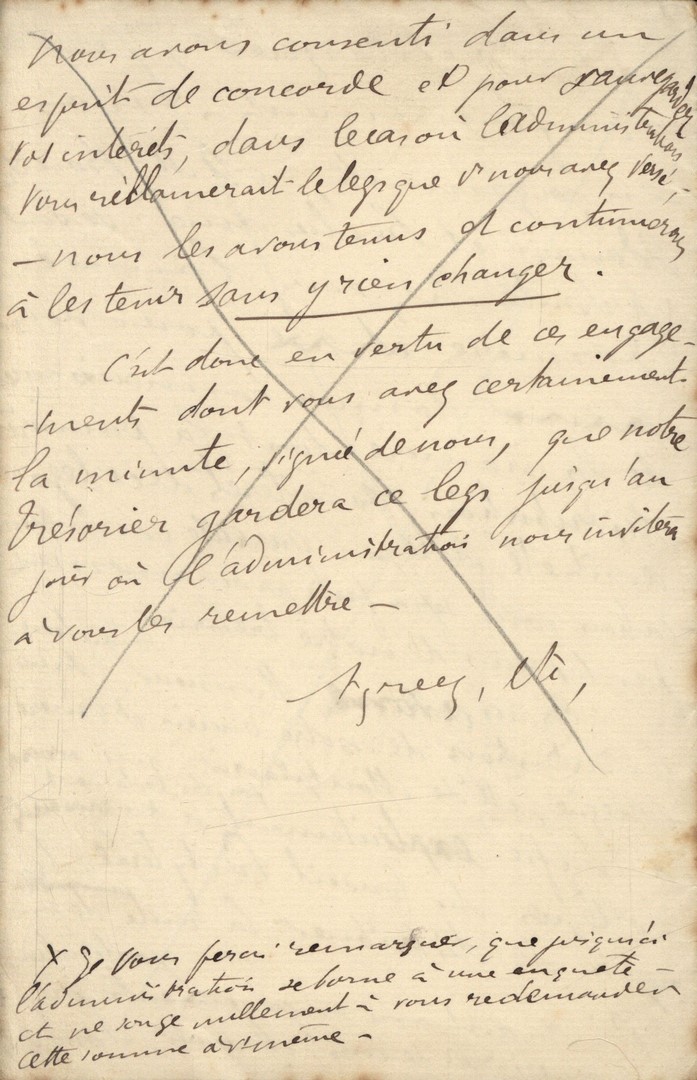 Nous avons consenti dans un
esprit de concorde et pour sauvegarder
vos intérêts, dans le cas où l'administration
vous réclamerait le legs que v. nous avez versé,
– nous les avons tenus et continuerons
à les tenir sans y rien changer.
C'est donc en vertu de ces engage-
-ments dont vous avez certainement
la minute, signée de nous, que notre
trésorier gardera ce legs jusqu'au
jour où l'administration nous invitera
à vous les remettre –
Agréez, etc,
X Je vous ferai remarquer, que jusqu'ici
l'administration se borne à une enquête –
et ne songe nullement à vous redemander
cette somme à v. même –